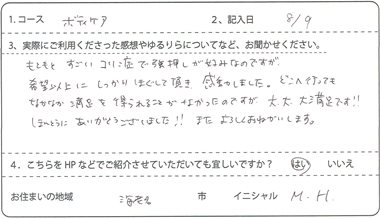 1.コース ボディケア 2、記入日 8/9
3、実際にご利用くださった感想やゆるりらについてなど、お聞かせください。
もともと すごい コリ症で 強押しが好みなのですが
希望以上に しっかり ほぐして頂き 感動しました。どこへ行っても
なかなか 満足を 得られることが なかったのですが 大、大、大満足です!!
ほんとうに ありがとうございました!! また よろしくおねがいします。
4．こちらをHPなどでご紹介させていただいても宜しいですか？ はい いいえ
お住まいの地域 海老名 市 イニシャル M.H.